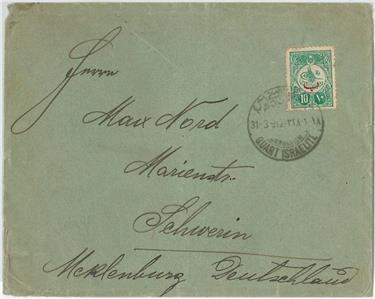 Herrn
Max Nord
Marienstr.
Schwerin
Meklenburg Deutschland
10 ١٠
31-3
QUART ISRAELITE